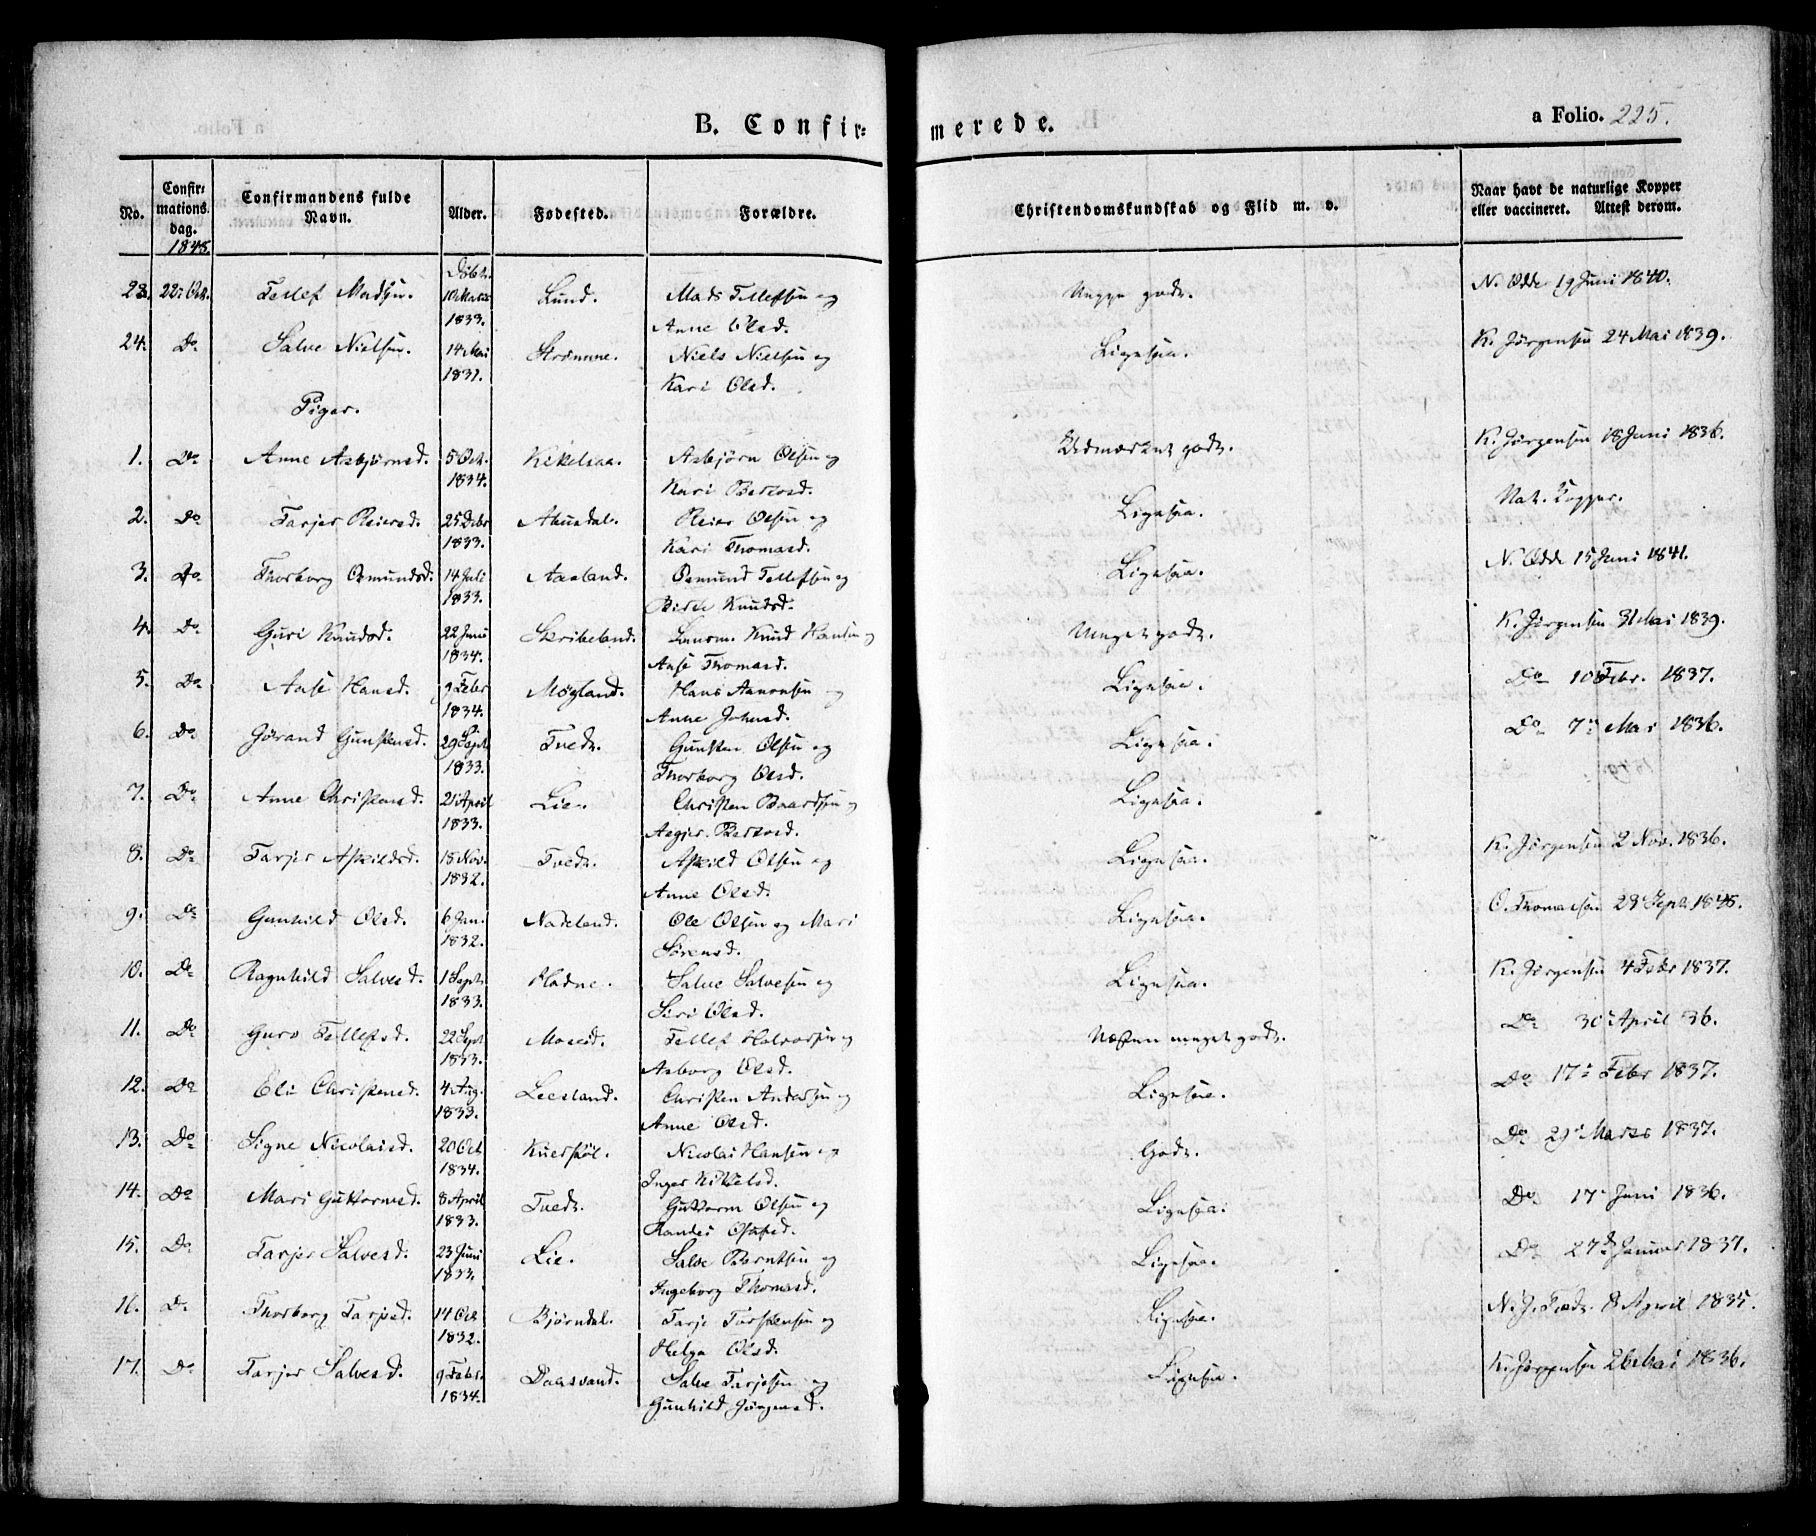 B. Confir=
merede.
a Folio. 225.
No. Confir=mations dag. Confirmandens fulde Navn. Alder. Fødested. Forældre. Christendomskundskab og Flid m. v. Naar havt de naturlige Kopper eller vaccineret. Attest derom.
1848.
Døbt.
23. 22. Oct. Tellef Madsen. 10 Marts Lund. Mads Tellefsen og Meget godt. N. Odde 19 Juni 1840.
1833. Anne Olsd.
24. Do Salve Nielsen. 14 Mai Strømme. Niels Nielsen og Ligesaa. K. Jørgensen 24 Mai 1839.
1831. Kari Olsd.
Piger.
1. Do Anne Asbjørnsd. 5 Oct. Kikelsaa. Asbjørn Olsen og Udmærket godt. K. Jørgensen 18 Juni 1836.
1834. Kari
2. Do Tarjer Reiersd. 25 Debr Aaundal. Reier Olsen og Ligesaa. Nat. Kopper.
1833. Kari Thomasd.
3. Do Thorborg Osmundsd. 14 Juli Aaland. Osmund Tellefsen og Ligesaa. N. Odde 15 Juni 1841.
1833. Birte Knudsd.
4. Do Guri Knudsd. 22 Juni Skribeland. Knud Hansen og Meget godt. K. Jørgensen 31 Mai 1839.
1834. Aase Thomasd.
5. Do Aase Hansd. 9 Febr Møgland. Hans Aanonsen og Ligesaa. Do 10 Febr. 1837.
1834. Anne Johnsd.
6. Do Jørand Gunstensd. 29 Sept. Tvedt. Gunsten Olsen og Ligesaa. Do 7 Mai 1836.
1833. Thorborg Olsd.
7. Do Anne Christensd. 21 April Lie. Christen Baardsen og Ligesaa.
1833. Aagjer
8. Do Tarjer Askildsd. 18 Nov. Tvedt. Askild Olsen og Ligesaa. K. Jørgensen 2 Nov. 1836.
1832. Anne Olsd.
9. Do Gunhild Olsd. 6 Jan. Nadeland. Ole Olsen og Mari Ligesaa. O. Thomassen 28 Sept. 1848.
1832. Sørensd.
10. Do Ragnhild Salvesd. 1 Sept. Flodne. Salve Salvesen og Ligesaa. K. Jørgensen 4 Febr 1837.
1833. Siri Olsd.
11. Do Guro Tellefsd. 22 Sept Moseid. Tellef Halvorsen og Næsten meget godt. Do 30 April 36.
1833. Asborg Olsd.
12. Do Eli Christensd. 4 Aug. Leesland. Christen Andersen og Ligesaa. Do 17 Febr 1837.
1833. Anne Olsd.
13. Do Signe Nicolaisd. 20 Oct Nicolai Hansen og Godt. Do 29 Marts 1837.
1834. Inger Kittelsd.
14. Do Mari Guttormsd. 8 April Tvedt. Guttorm Olsen og Ligesaa. Do 17 Juni 1836.
1833. Randei
15. Do Tarjer Salvesd. 23 Juni Lie. Salve Berntsen og Ligesaa. Do 27 Januar 1837.
1833. Ingeborg Thomasd.
16. Do Thorborg Tarjesd. 14 Oct Bjørndal. Tarje Torstensen og Ligesaa. N. J. Tvedt 8 April 1835.
1832. Helga Olsd.
17. Do Tarjer Salvesd. 9 Febr. Daasvand. Salve Tarjesen og Ligesaa. K. Jørgensen 26 Mai 1836.
1834. Gunhild Jørgensd.